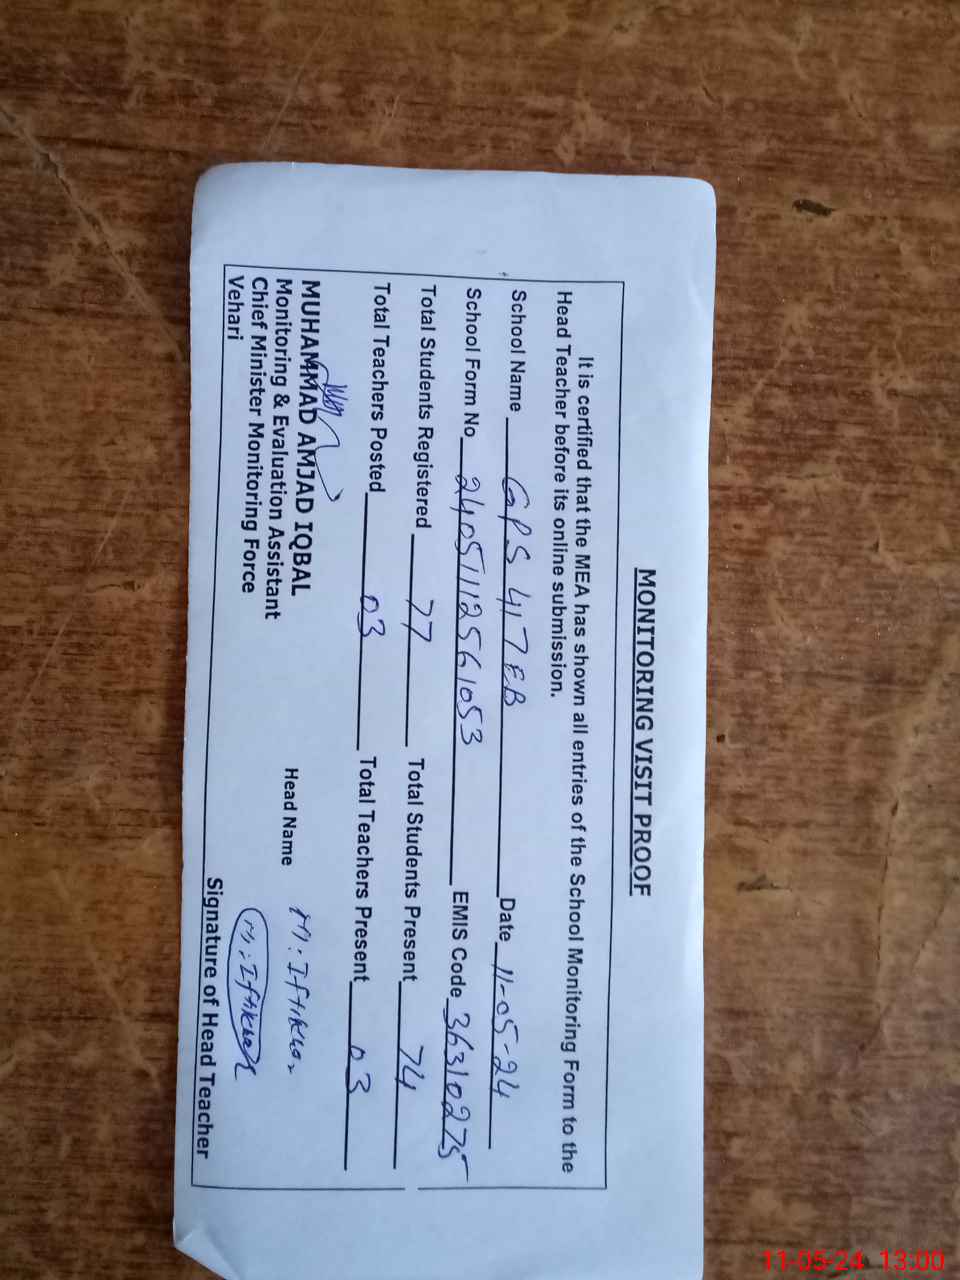 MONITORING VISIT PROOF
It is certified that the MEA has shown all entries of the School Monitoring Form to the
Head Teacher before its online submission.
School Name GPS 417 EB Date 11-05-24
School Form No 24051112561053 EMIS Code 36310275
Total Students Registered 77 Total Students Present 74
Total Teachers Posted 03 Total Teachers Present 03
MUHAMMAD AMJAD IQBAL
Monitoring & Evaluation Assistant
Chief Minister Monitoring Force
Vehari
Head Name M. Iftikhar
M. Iftikhar
Signature of Head Teacher
11-05-24 13:00